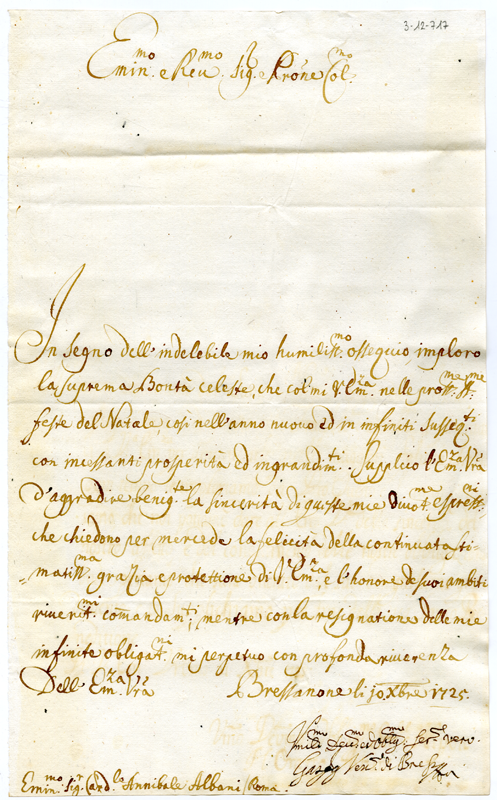 3-12-717
Emin.mo e Rev.mo Sig.r e Prone Col.mo
In segno dell'indelebile mio humiliss.mo ossequio imploro
la suprema Bontà celeste, che colmi V. Em.za nelle pross.me S.me
feste del Natale, così nell'anno nuovo ed in infiniti susseg.ti
con incessanti prosperità ed ingrandim.ti. Supplico l'Em.za V.ra
d'aggradire benig.te la sincerità di queste mie divot.ma espress.ni
che chiedono per mercede la felicità della continuata sti-
matiss.ma grazia e protettione di V. Em.za, e l'honore de suoi ambiti
riverit.mi comandam.ti, mentre con la resignatione delle mie
infinite obligat.ni mi perpetuo con profonda riverenza
Dell'Em.za V.ra Bressanone li 10 Xbre 1725.
Hum.mo Ser.e vero
di
Emin.mo Sig.r Card.la Annibale Albani Roma